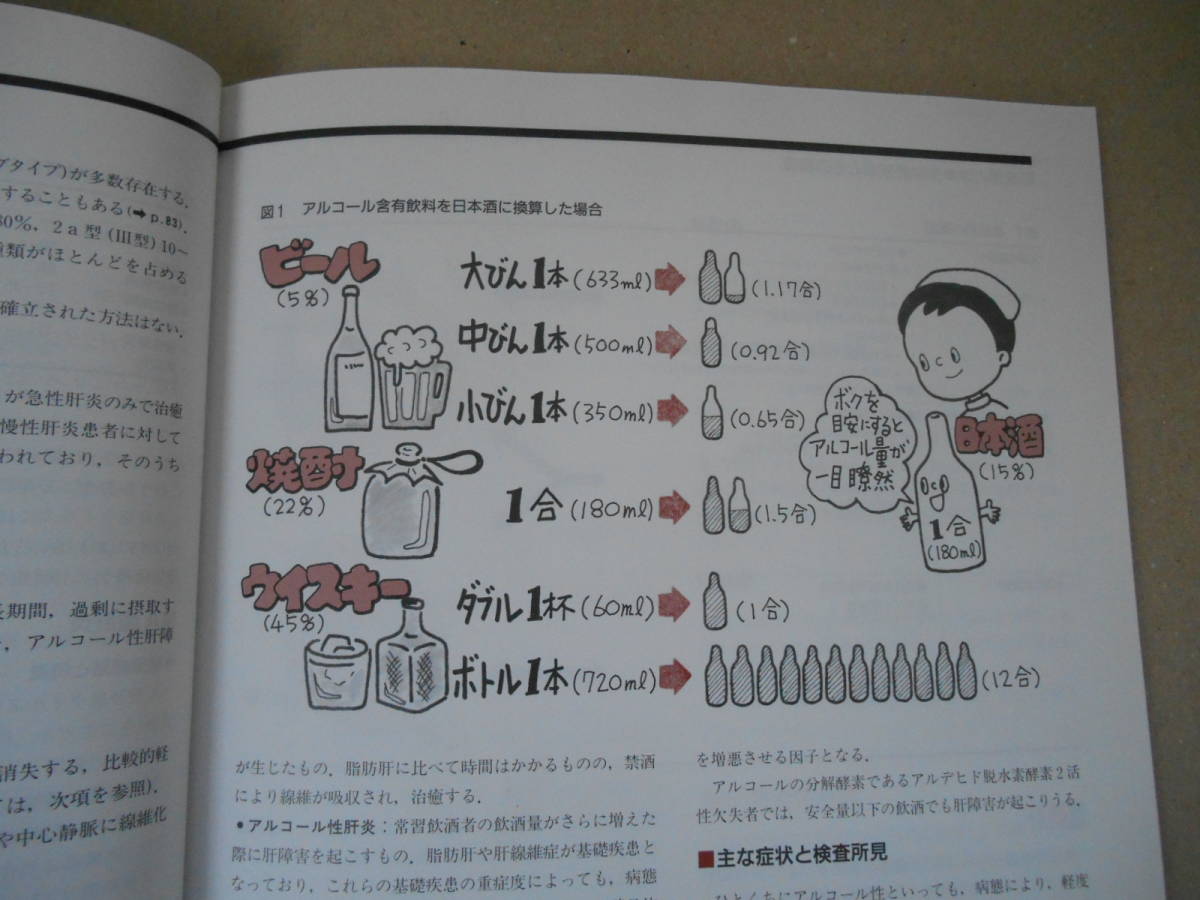 ブタイプ)が多数存在する.
することもある(➡p.83).
80%, 2a型(III型)10～
種類がほとんどを占める
確立された方法はない.
が急性肝炎のみで治癒
慢性肝炎患者に対して
われており, そのうち
長期間, 過剰に摂取す
, アルコール性肝障
消失する, 比較的軽
ては, 次項を参照).
や中心静脈に線維化
図1 アルコール含有飲料を日本酒に換算した場合
ビール
(5%)
大びん1本(633ml)
(1.17合)
中びん1本(500ml)
(0.92合)
小びん1本(350ml)
(0.65合)
焼酎
(22%)
1合(180ml)
(1.5合)
ウイスキー
(45%)
ダブル1杯(60ml)
(1合)
ボトル1本(720ml)
(12合)
ボクを
目安にすると
アルコール量が
一目瞭然
日本酒
(15%)
1合
(180ml)
が生じたもの. 脂肪肝に比べて時間はかかるものの, 禁酒
により線維が吸収され, 治癒する.
•アルコール性肝炎:常習飲酒者の飲酒量がさらに増えた
際に肝障害を起こすもの. 脂肪肝や肝線維症が基礎疾患と
なっており, これらの基礎疾患の重症度によっても, 病態
を増悪させる因子となる.
アルコールの分解酵素であるアルデヒド脱水素酵素2活
性欠失者では, 安全量以下の飲酒でも肝障害が起こりうる.
■主な症状と検査所見
ひとくちにアルコール性といっても, 病態により, 軽度